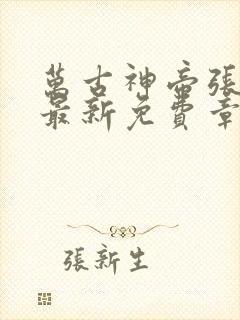 萬古神帝張
最新免費章
張新生